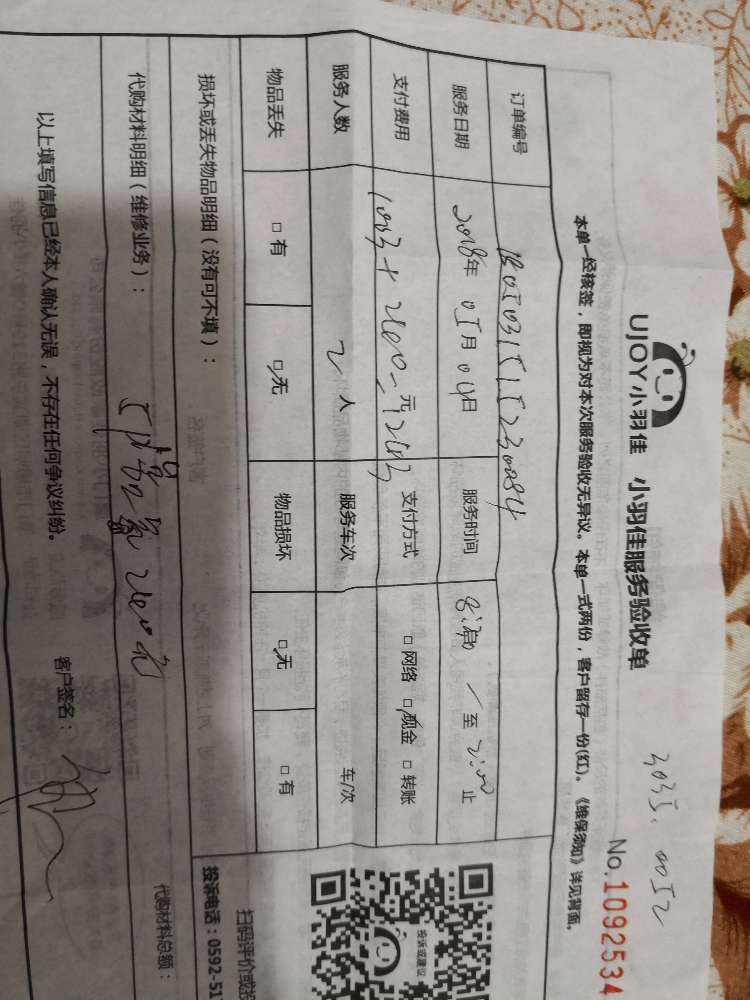 UJOY小羽佳 小羽佳服务验收单
3035. 0052
No.1092534
本单一经核签，即视为对本次服务验收无异议。本单一式两份，客户留存一份(红)。《维保须知》详见背面。
订单编号
服务日期 2018年 05月 04日 服务时间 至 止
支付费用 元 支付方式 □网络 □现金 □转账
服务人数 2人 服务车次 车/次
物品丢失 □有 □无 物品损坏 □无 □有
损坏或丢失物品明细（没有可不填）：
代购材料明细（维修业务）：
代购材料总额：
以上填写信息已经本人确认无误，不存在任何争议纠纷。
客户签名：
投诉或建议
扫码评价或投
投诉电话：0592-51